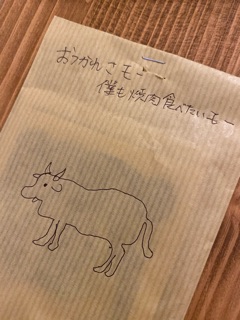 おつかれさモー
僕も焼肉食べたいモー